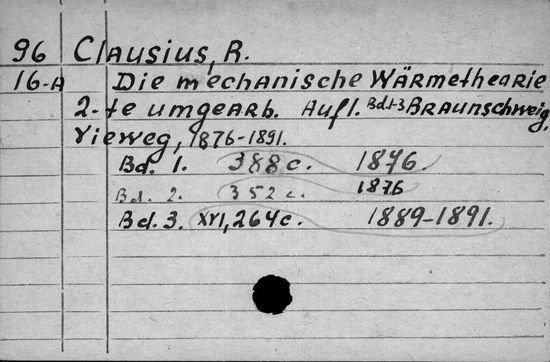 96 Clausius, R.
16-A Die mechanische Wärmethearie
2-te umgearb. Aufl. Bd.1-3 Braunschweig,
Vieweg, 1876-1891.
Bd. 1. 388 c. 1876.
Bd. 2. 352 c. 1876
Bd. 3. XVI, 264 c. 1889-1891.